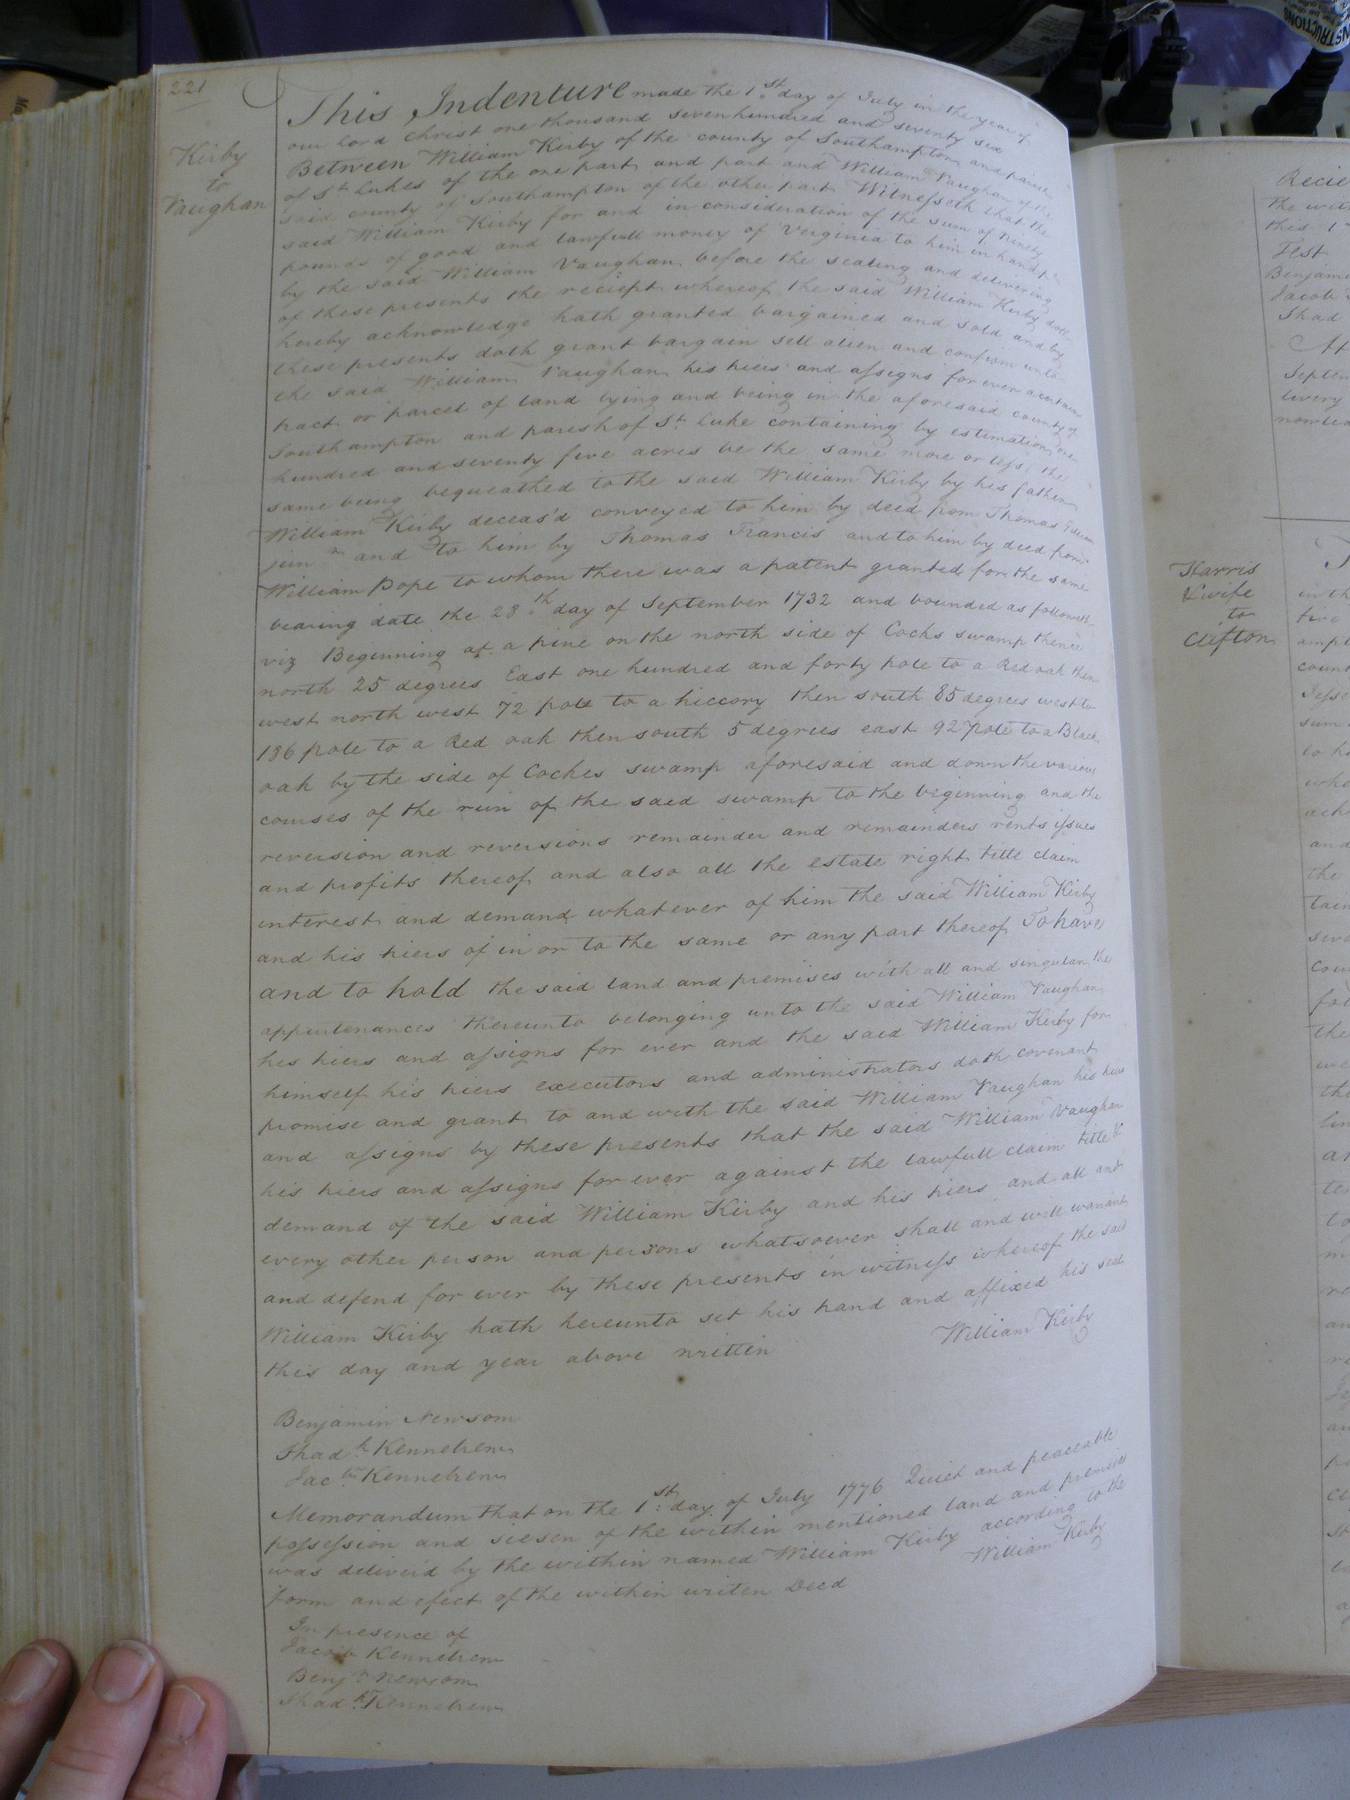 221
Kirby
to
Vaughan
This Indenture made the 1st day of July in the year of
our lord Christ one thousand sevenhundred and seventy six
Between William Kirby of the county of Southampton and parish
of St. Lukes of the one part and part and William Vaughan of the
said county of Southampton of the other part Witnesseth that the
said William Kirby for and in consideration of the sum of ninety
pounds of good and lawfull money of Virginia to him in hand
by the said William Vaughan before the sealing and delivering
of these presents the reciept whereof the said William Kirby doth
hereby acknowledge hath granted bargained and sold and by
these presents doth grant bargain sell alien and confirm unto
the said William Vaughan his hiers and assigns for ever a certain
tract or parcel of land lying and being in the aforesaid county of
Southampton and parish of St. Luke containing by estimation one
hundred and seventy five acres be the same more or less, the
same being bequeathed to the said William Kirby by his father
William Kirby deceas'd conveyed to him by deed from Thomas
jun and to him by Thomas Francis and to him by deed from
William Pope to whom there was a patent granted for the same
bearing date the 28th day of September 1732 and bounded as followeth
viz Beginning at a pine on the north side of Cocks swamp thence
north 25 degrees East one hundred and forty pole to a Red oak then
west north west 72 pole to a hiccory then south 85 degrees west to
186 pole to a Red oak then south 5 degrees east 92 pole to a Black
oak by the side of Cockes swamp aforesaid and down the various
courses of the run of the said swamp to the beginning and the
reversion and reversions remainder and remainders rents issues
and profits thereof and also all the estate right title claim
interest and demand whatever of him the said William Kirby
and his hiers of in or to the same or any part thereof To have
and to hold the said land and premises with all and singular the
appurtenances thereunto belonging unto the said William Vaughan
his hiers and assigns for ever and the said William Kirby for
himself his hiers executors and administrators doth covenant
promise and grant to and with the said William Vaughan his hiers
and assigns by these presents that the said William Vaughan
his hiers and assigns for ever against the lawfull claim title &
demand of the said William Kirby and his hiers and all and
every other person and persons whatsoever shall and will warrant
and defend for ever by these presents in witness whereof the said
William Kirby hath hereunto set his hand and affixed his seal
this day and year above written
William Kirby
Benjamin Newsom
Shadh. Kennebrew
Jacb. Kennebrew
Memorandum that on the 1st: day of July 1776 Quiet and peaceable
possession and siesen of the within mentioned land and premises
was deliver'd by the within named William Kirby according to the
form and efect of the within writen Deed
William Kirby
In presence of
Jacob Kennebrew
Benjn. Newsom
Shadh. Kennebrew
Test
Jacob
Shad
Harris
& wife
to
Clifton